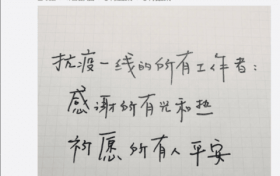 抗疫一线的所有工作者：
感谢所有光和热
祈愿所有人平安